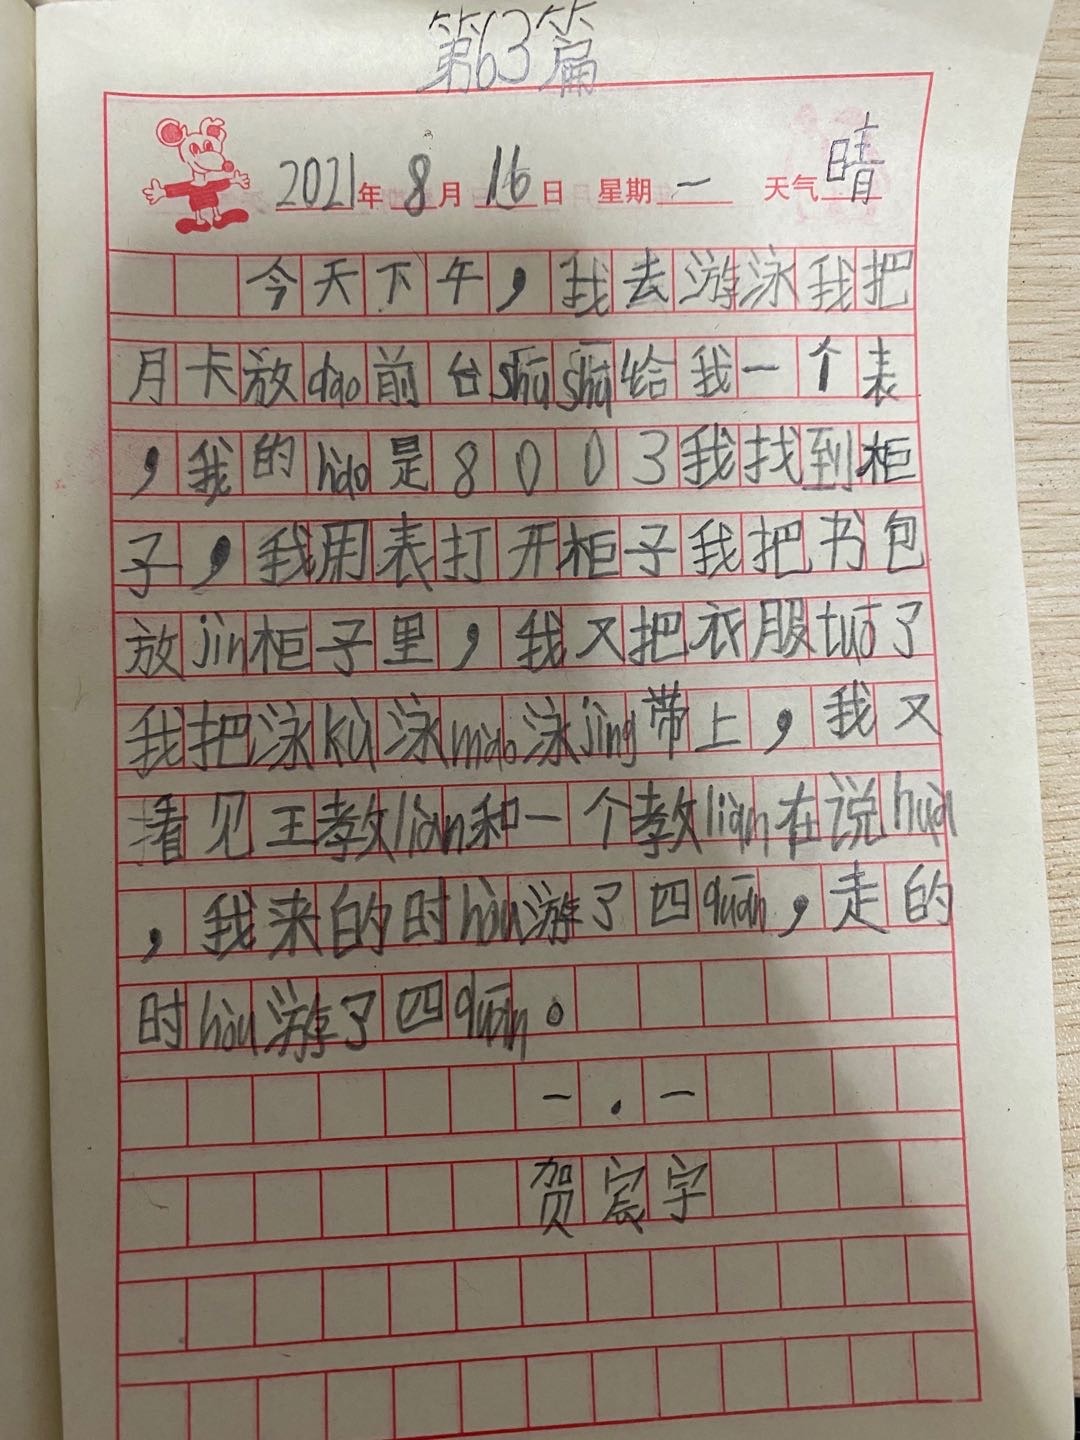 第63篇
2021年 8月 16日 星期一 天气晴
今天下午，我去游泳我把
月卡放dao前台shūshū给我一个表
，我的hào是8003我找到柜
子，我用表打开柜子我把书包
放jìn柜子里，我又把衣服tuō了
我把泳kù泳mào泳jìng带上，我又
看见王教liàn和一个教liàn在说huà
，我来的时hòu游了四quān，走的
时hòu游了四quān。
一.一
贺宸宇